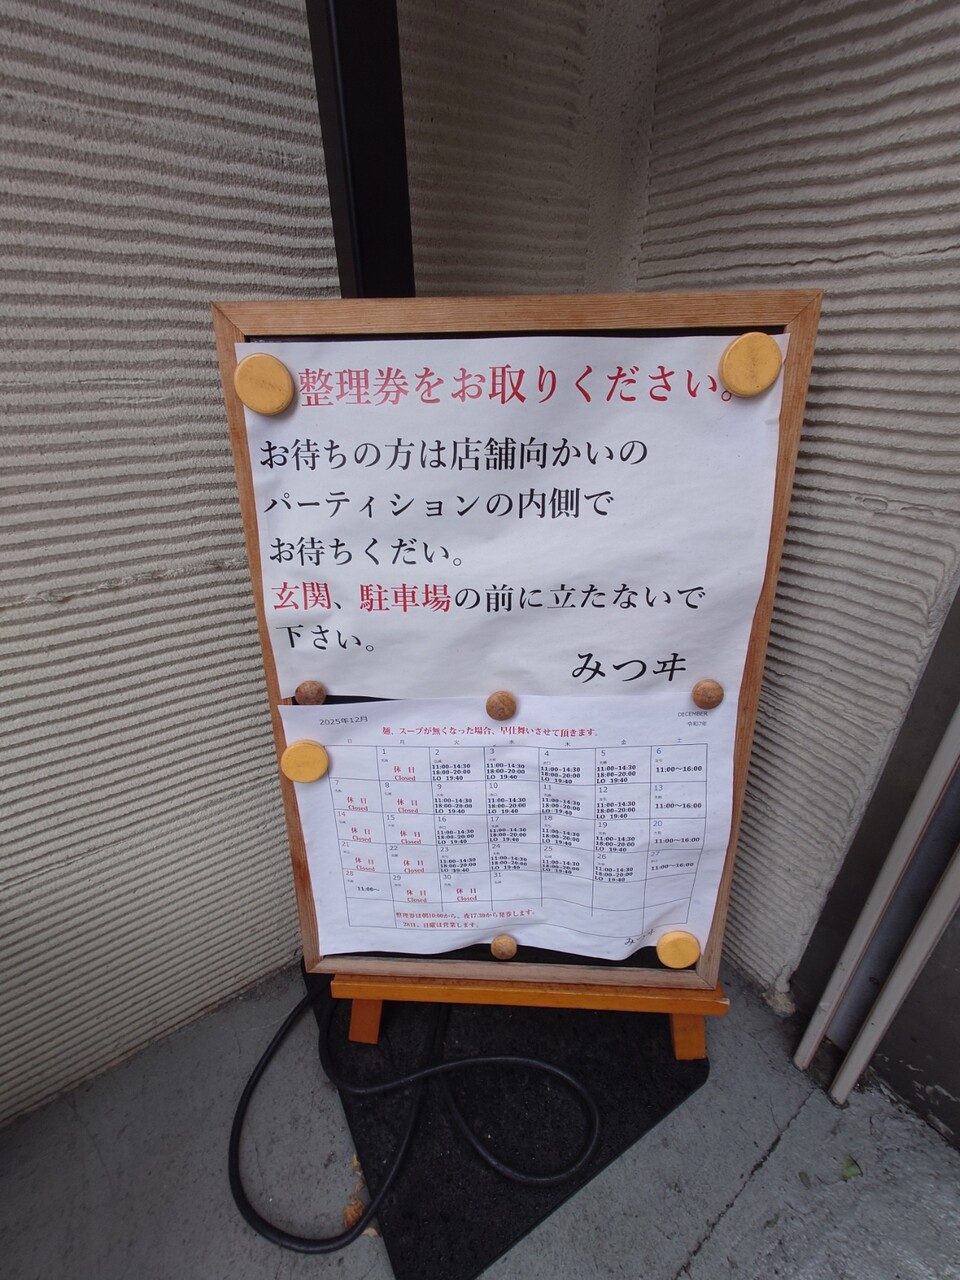 整理券をお取りください。
お待ちの方は店舗向かいの
パーティションの内側で
お待ちくだい。
玄関、駐車場の前に立たないで
下さい。
みつヰ
2025年12月
DECEMBER
令和7年
麺、スープが無くなった場合、早仕舞いさせて頂きます。
日 月 火 水 木 金 土
1 2 3 4 5 6
休 日 11:00-14:30 11:00-14:30 11:00-14:30 11:00-14:30 11:00~16:00
Closed 18:00-20:00 18:00-20:00 18:00-20:00 18:00-20:00
LO 19:40 LO 19:40 LO 19:40 LO 19:40
7 8 9 10 11 12 13
休 日 休 日 11:00-14:30 11:00-14:30 11:00-14:30 11:00-14:30 11:00~16:00
Closed Closed 18:00-20:00 18:00-20:00 18:00-20:00 18:00-20:00
LO 19:40 LO 19:40 LO 19:40 LO 19:40
14 15 16 17 18 19 20
休 日 休 日 11:00-14:30 11:00-14:30 11:00-14:30 11:00-14:30 11:00~16:00
Closed Closed 18:00-20:00 18:00-20:00 18:00-20:00 18:00-20:00
LO 19:40 LO 19:40 LO 19:40 LO 19:40
21 22 23 24 25 26 27
休 日 休 日 11:00-14:30 11:00-14:30 11:00-14:30 11:00-14:30 11:00~16:00
Closed Closed 18:00-20:00 18:00-20:00 18:00-20:00 18:00-20:00
LO 19:40 LO 19:40 LO 19:40 LO 19:40
28 29 30 31
11:00~ 休 日 休 日
Closed Closed
整理券は朝10:00から、夜17:30から発券します。
28日、日曜は営業します。
みつヰ